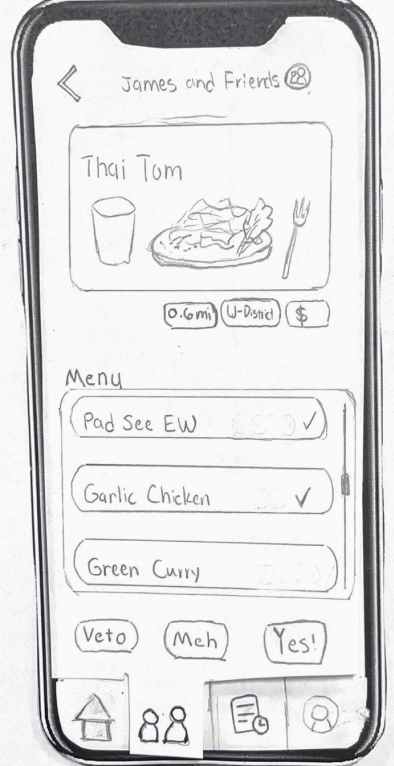 James and Friends
Thai Tom
0.6mi U-District $
Menu
Pad See EW
Garlic Chicken
Green Curry
Veto Meh Yes!